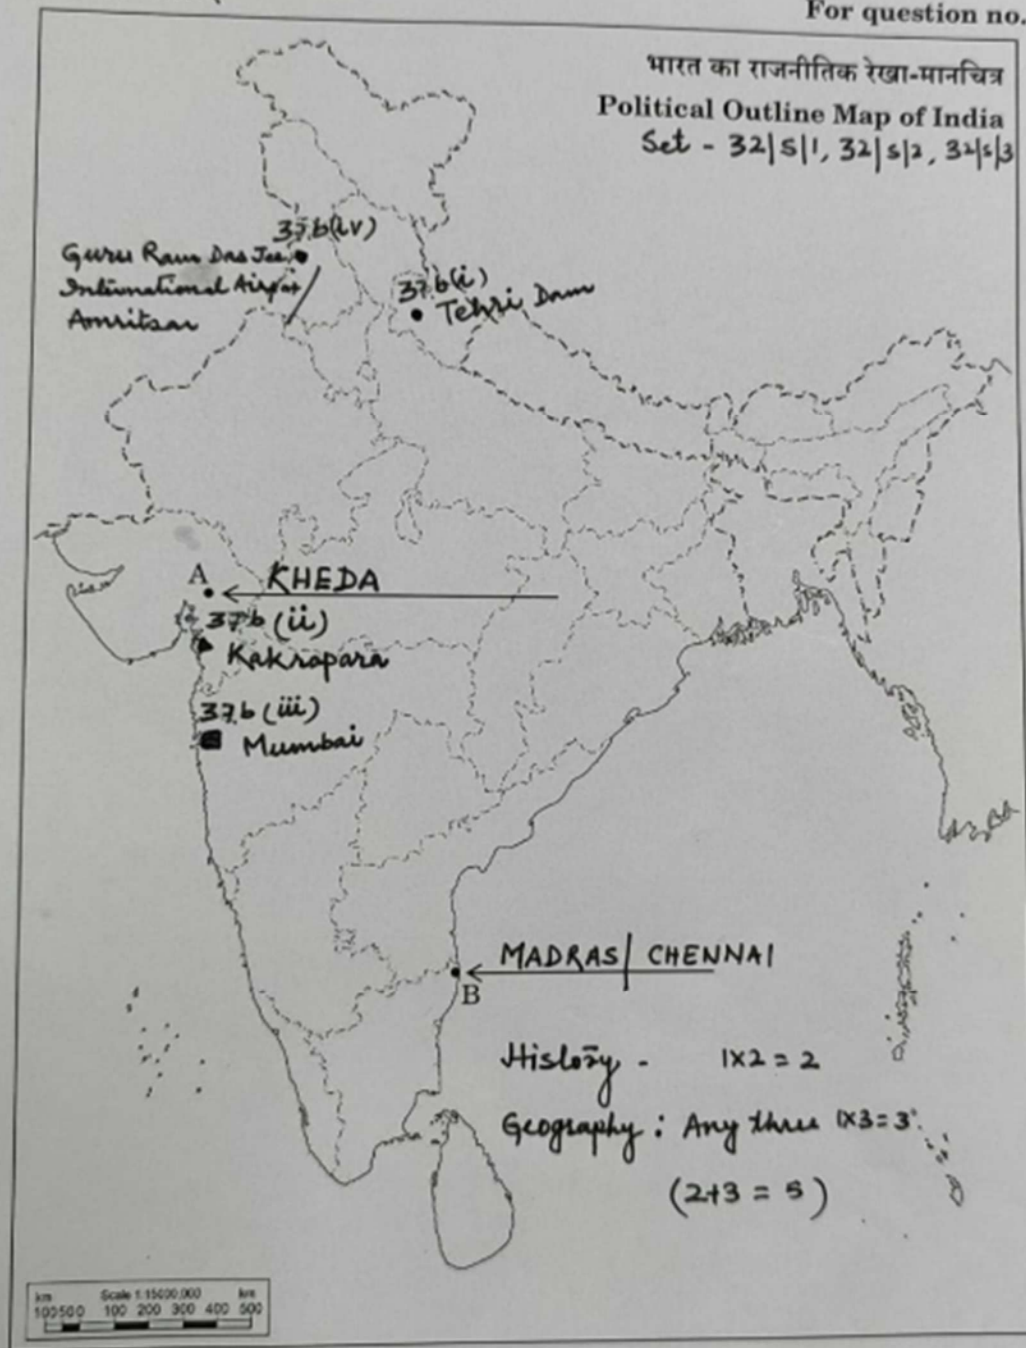 For question no.
भारत का राजनीतिक रेखा-मानचित्र
Political Outline Map of India
Set - 32|S|1, 32|S|2, 32|S|3
37.b(iv)
Guru Ram Das Jee
International Airport
Amritsar
37.b(i)
Tehri Dam
A
KHEDA
37.b (ii)
Kakrapara
37.b (iii)
Mumbai
MADRAS| CHENNAI
B
History - 1×2 = 2
Geography : Any three 1×3=3
(2+3 = 5)
km Scale 1:15000,000 km
100500 100 200 300 400 500